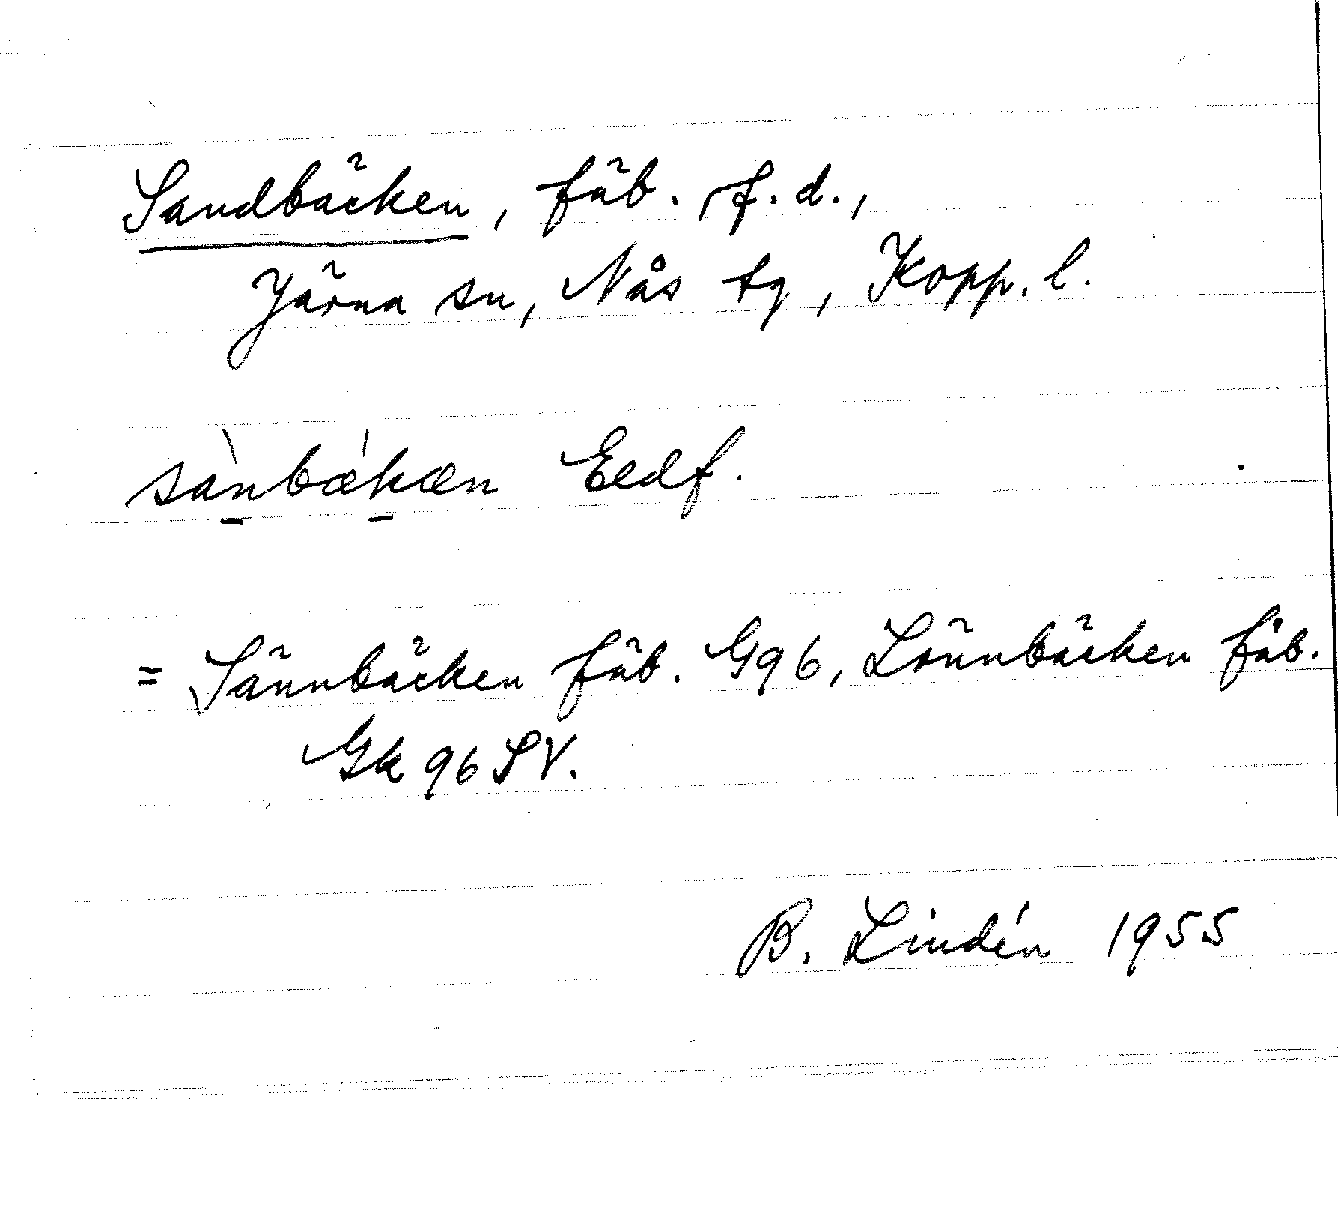 Sandbäcken, fäb. f.d.,
Järna sn, Nås tg, Kopp. l.
sànbǽkæn Eedf.
= Sännbäcken fäb. G96, Lönnbäcken fäb.
Gk 96 SV.
B. Lindén 1955